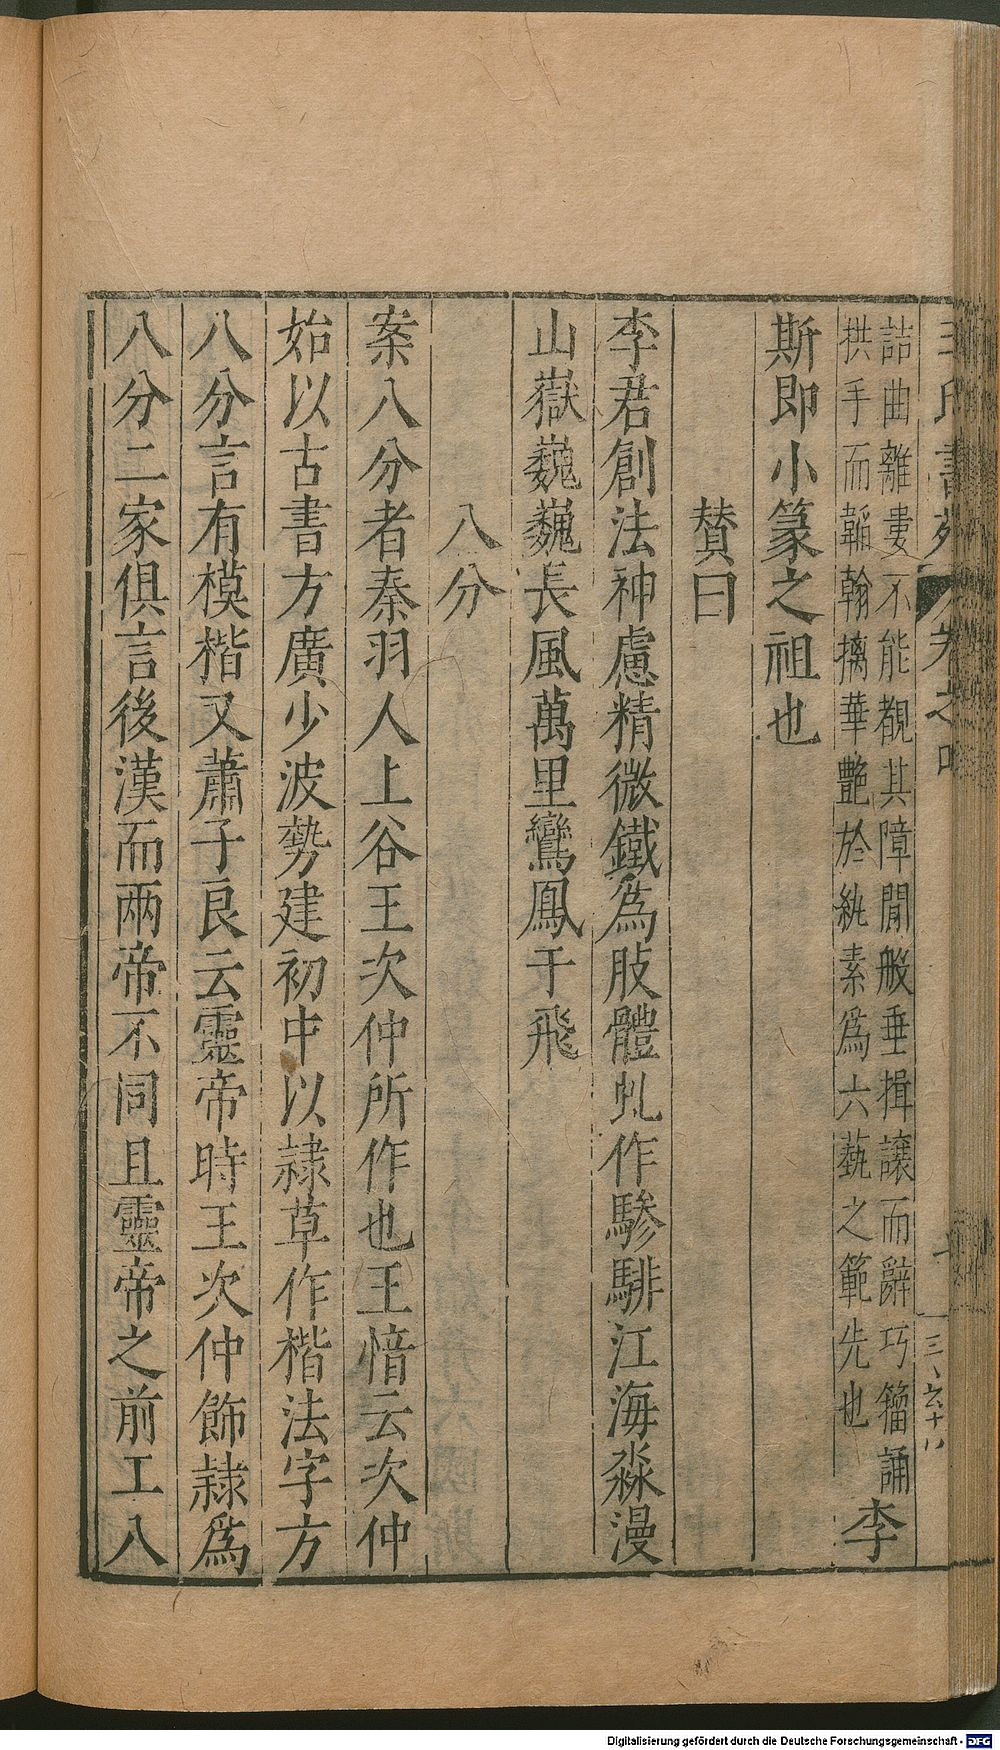 王氏書苑 卷之
三、六十八
詰曲離婁不能覩其障間般垂揖讓而辭巧籀誦
拱手而韜翰摛華艷於紈素爲六藝之範先也
李
斯即小篆之祖也
賛曰
李君創法神慮精微鐵爲肢體虬作驂騑江海淼漫
山嶽巍巍長風萬里鸞鳳于飛
八分
案八分者秦羽人上谷王次仲所作也王愔云次仲
始以古書方廣少波勢建初中以隸草作楷法字方
八分言有模楷又蕭子良云靈帝時王次仲飾隸爲
八分二家俱言後漢而兩帝不同且靈帝之前工八
Digitalisierung gefördert durch die Deutsche Forschungsgemeinschaft - DFG